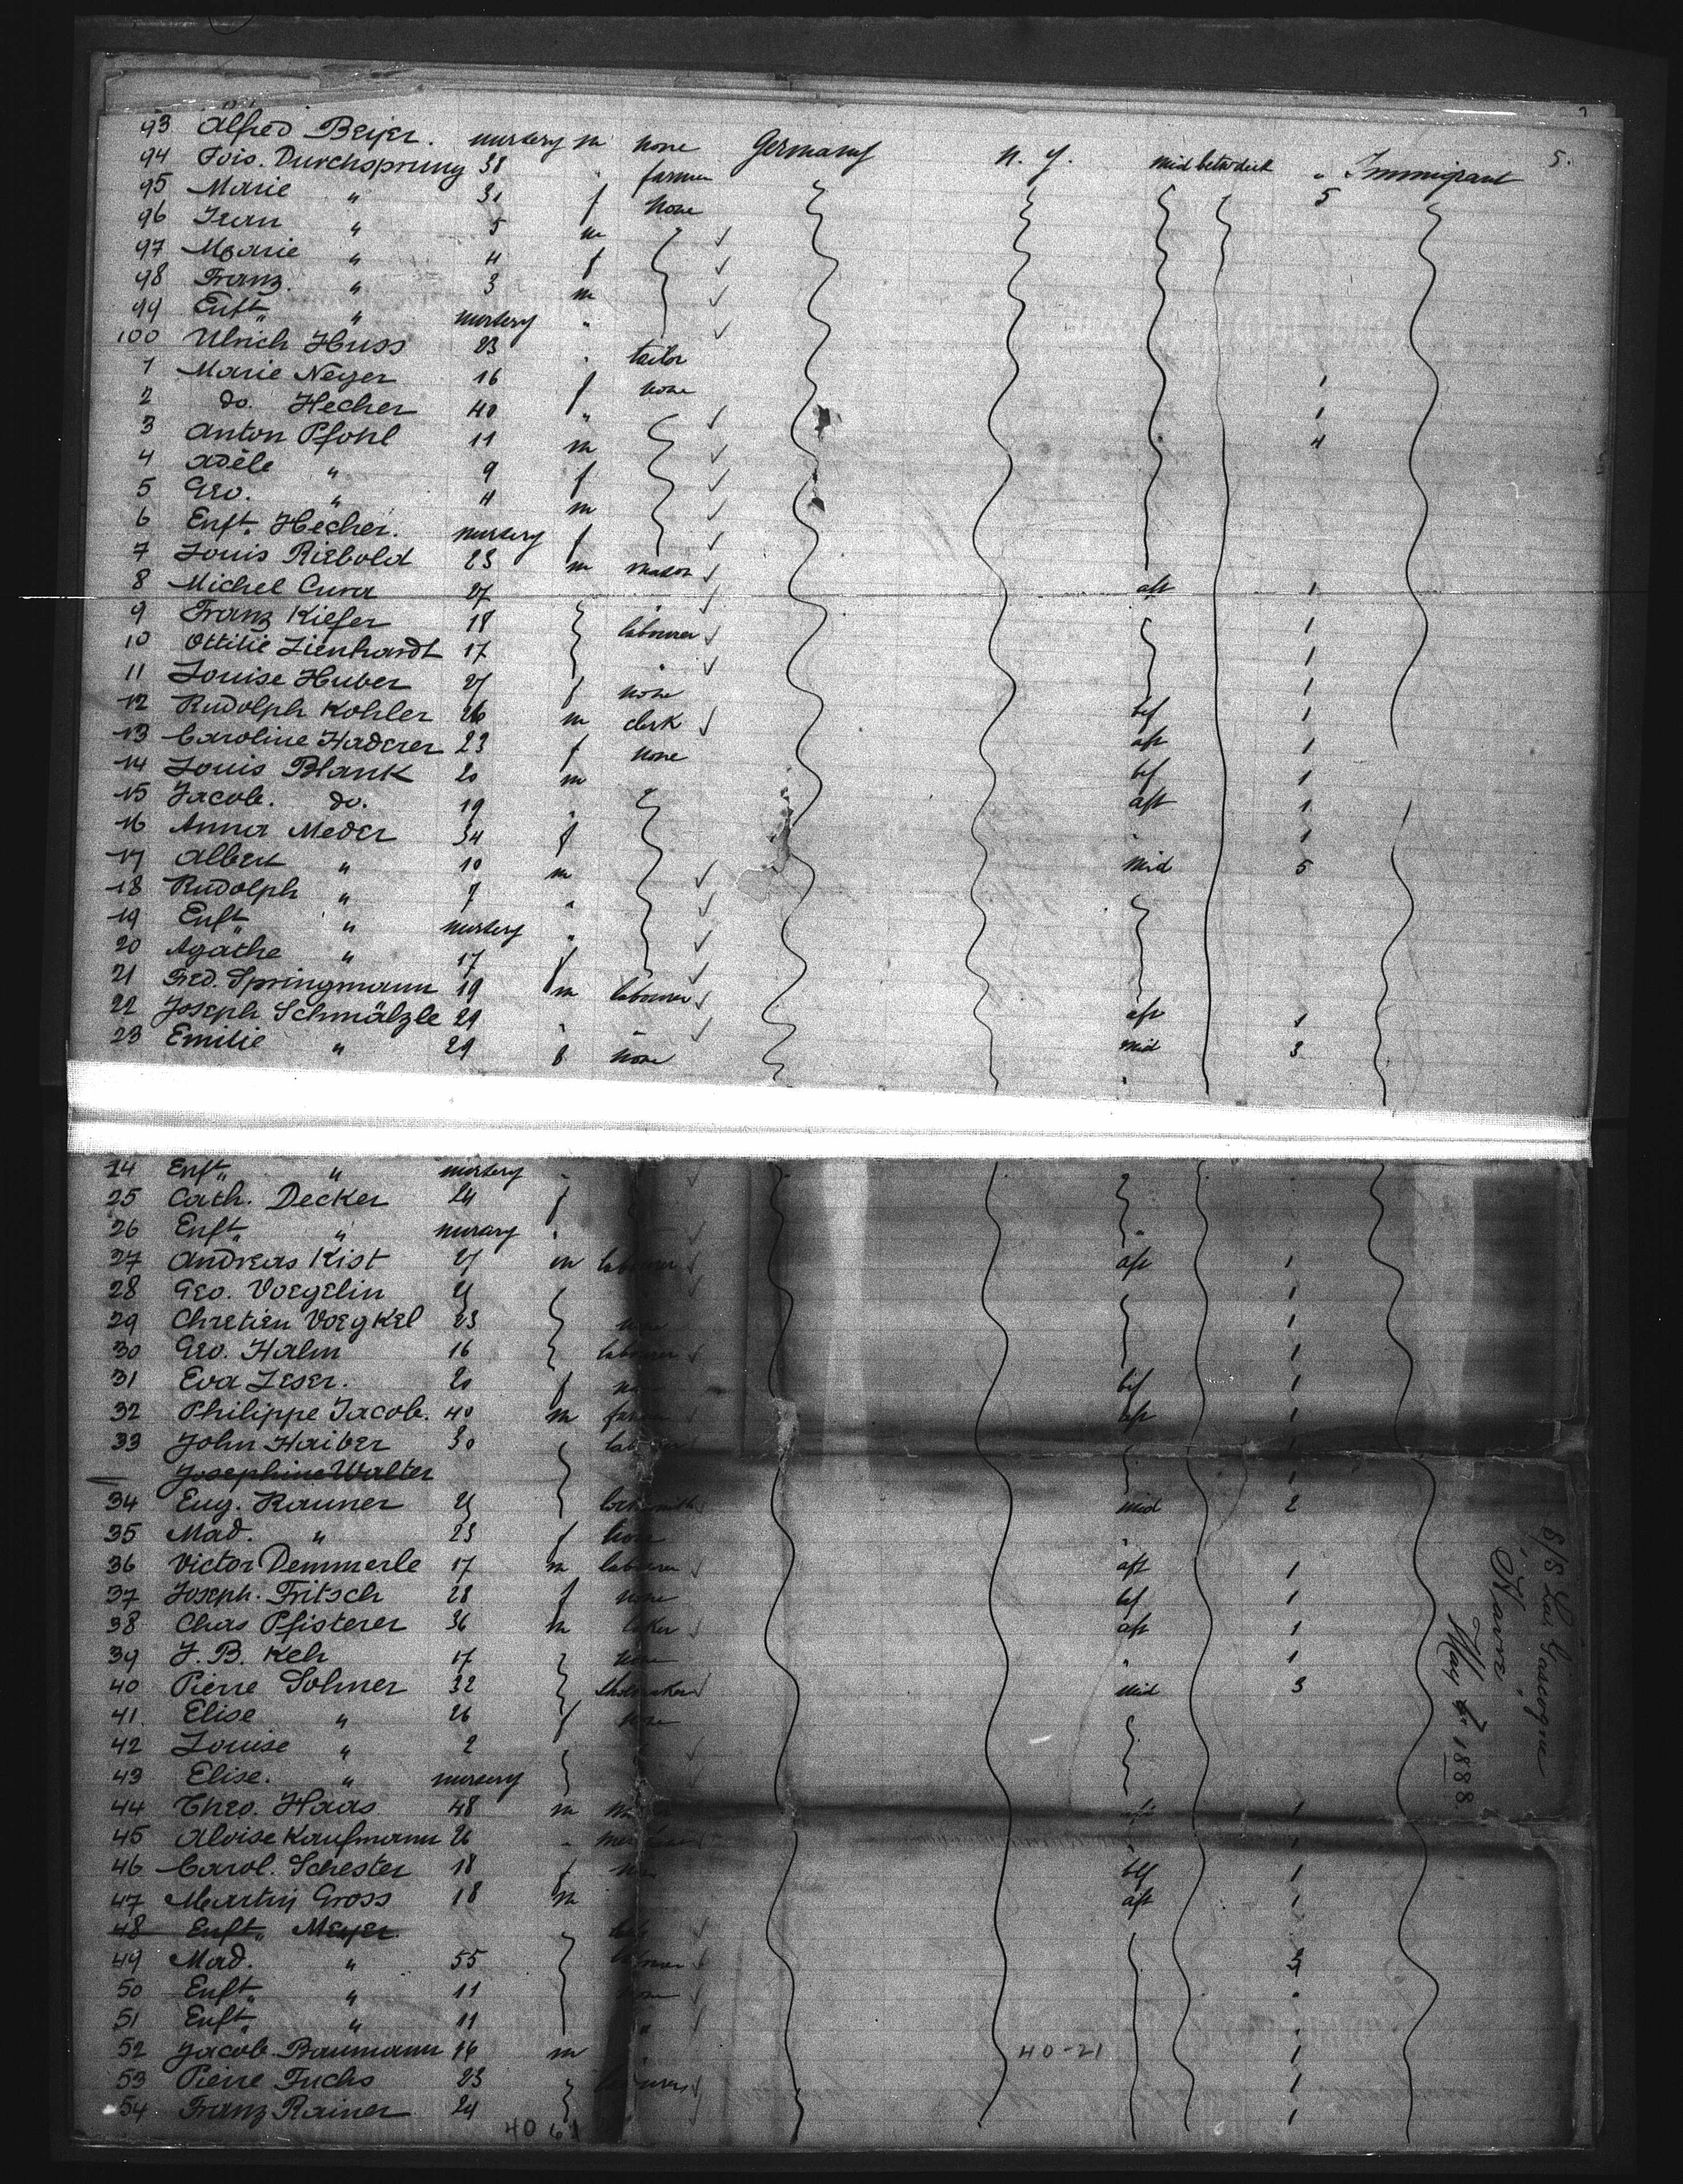 5.
93 Alfred Beyer. nursery m none Germany n. y. mid betw deck " Immigrant
94 Fois. Durchsprung 38 " farmer 5
95 Marie " 31 f none
96 Jean " 5 m
97 Marie " 4 f
98 Franz. " 3 m
99 Enft " nursery "
100 Ulrich Huss 23 " tailor 1
1 Marie Neyer 16 f none 1
2 do. Hecher 40 " 4
3 Anton Pfohl 11 m
4 Adèle " 9 f
5 Geo. " 4 m
6 Enft. Hecher. nursery f
7 Louis Riebold 23 m mason aft 1
8 Michel Cura 27 1
9 Franz Kiefer 18 labourer 1
10 Ottilie Lienhardt 17 " 1
11 Louise Huber 27 f none bef 1
12 Rudolph Kohler 26 m clerk aft 1
13 Caroline Haderer 23 f none bef 1
14 Louis Blank 20 m aft 1
15 Jacob. do. 19 " " 1
16 Anna Meder 34 f mid 5
17 Albert " 10 m
18 Rudolph " 7 "
19 Enft " nursery "
20 Agathe " 17 f
21 Fred. Springmann 19 m labourer aft 1
22 Joseph Schmälzle 29 " " mid 3
23 Emilie " 29 f none "
24 Enft " nursery "
25 Cath. Decker 24 f
26 Enft " nursery "
27 Andreas Kist 27 m labourer aft 1
28 Geo. Voegelin 1
29 Chretien Voegkel 23 none 1
30 Geo. Halm 16 labourer 1
31 Eva Leser. 20 f none bef 1
32 Philippe Jacob. 40 m farmer aft 1
33 John Haiber 30 labourer 1
Josephine Walter 1
34 Eug. Rauner locksmith mid 2
35 Mad. " 23 f none "
36 Victor Demmerle 17 m labourer aft 1
37 Joseph. Fritsch 28 f none bef 1
38 Chas Pfisterer 36 m baker aft 1
39 J. B. Keh 17 none " 1
40 Pierre Sohner 32 shoemaker mid 3
41. Elise " 26 f none
42 Louise " 2
43 Elise. " nursery
44 Theo. Haas 48 m aft 1
45 Aloise Kaufmann 26 " 1
46 Carol. Schester 18 f bef 1
47 Martin Gross 18 m aft 1
48 Enft " Meyer.
49 Mad. " 55
50 Enft " " 11 none "
51 Enft " " 11 " "
52 Jacob Baumann 16 m 1
53 Pierre Fuchs 23 labourer 1
54 Franz Rainer 24 1
40-21
S/S La Gascogne
Havre
May 7. 1888